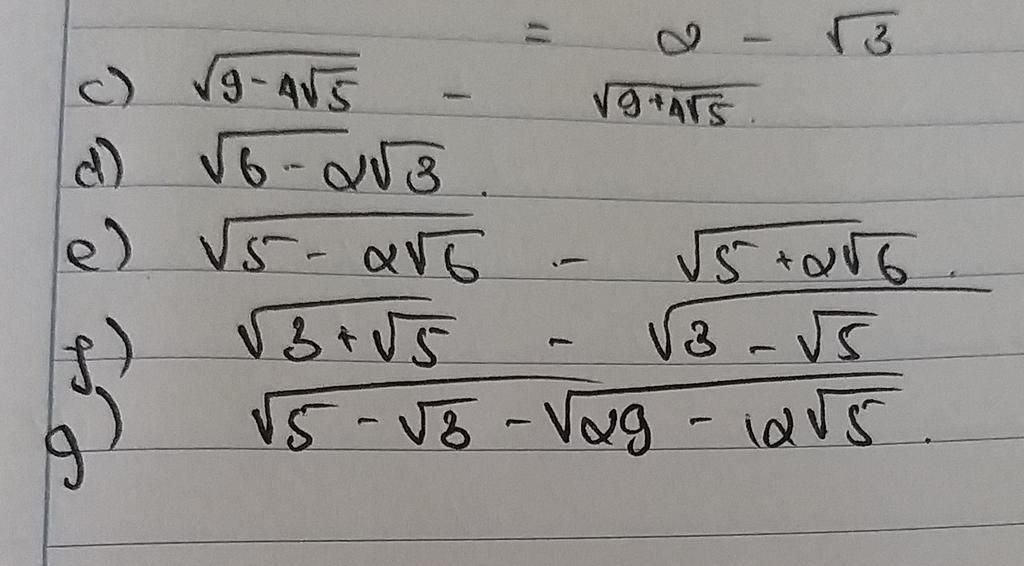 = 2 - √3
c) √(9 - 4√5) - √(9 + 4√5).
d) √(6 - 2√3).
e) √(5 - 2√6) - √(5 + 2√6).
f) √(3 + √5) - √(3 - √5)
g) √(5 - √(3 - √(29 - 12√5))).